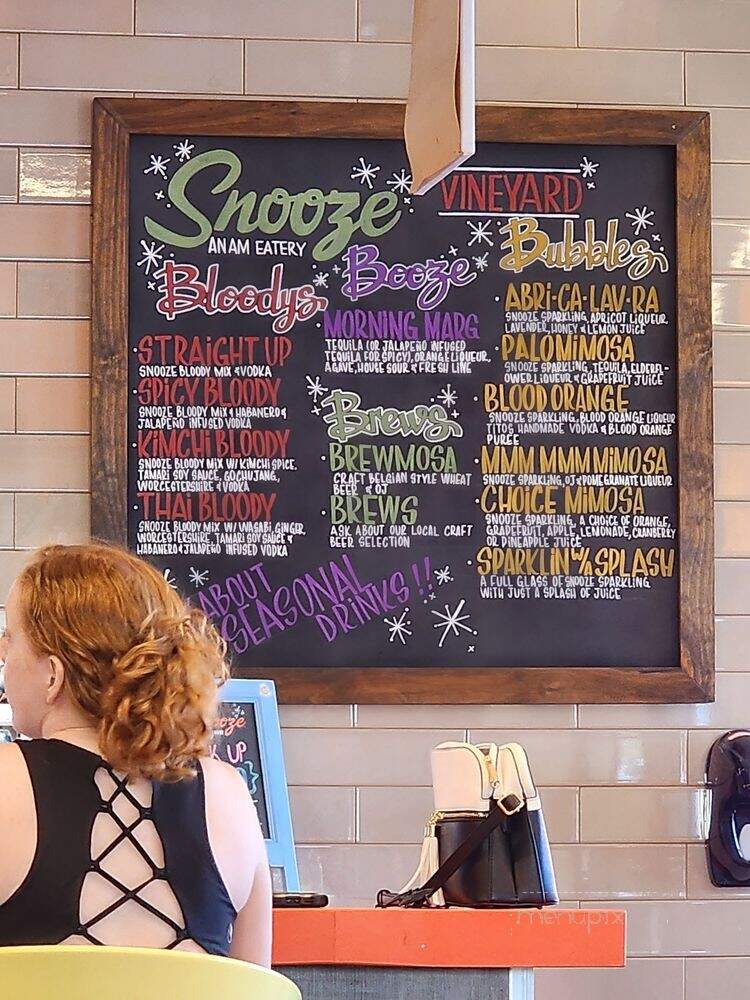 Snooze
AN AM EATERY
VINEYARD
Bloodys
STRAIGHT UP
SNOOZE BLOODY MIX & VODKA
SPICY BLOODY
SNOOZE BLOODY MIX & HABANERO &
JALAPEÑO INFUSED VODKA
KIMCHI BLOODY
SNOOZE BLOODY MIX W/ KIMCHI SPICE,
TAMARI SOY SAUCE, GOCHUJANG,
WORCESTERSHIRE & VODKA
THAI BLOODY
SNOOZE BLOODY MIX W/ WASABI, GINGER,
WORCESTERSHIRE, TAMARI SOY SAUCE &
HABANERO & JALAPEÑO INFUSED VODKA
Booze
MORNING MARG
TEQUILA (OR JALAPEÑO INFUSED
TEQUILA FOR SPICY), ORANGE LIQUEUR,
AGAVE, HOUSE SOUR & FRESH LIME
Brews
BREWMOSA
CRAFT BELGIAN STYLE WHEAT
BEER & OJ
BREWS
ASK ABOUT OUR LOCAL CRAFT
BEER SELECTION
Bubbles
ABRI-CA-LAV-RA
SNOOZE SPARKLING, APRICOT LIQUEUR,
LAVENDER, HONEY & LEMON JUICE
PALOMIMOSA
SNOOZE SPARKLING, TEQUILA, ELDERFL-
OWER LIQUEUR & GRAPEFRUIT JUICE
BLOOD ORANGE
SNOOZE SPARKLING, BLOOD ORANGE LIQUEUR
TITOS HANDMADE VODKA & BLOOD ORANGE
PURÉE
MMM MMM MIMOSA
SNOOZE SPARKLING, OJ & POMEGRANATE LIQUEUR
CHOICE MIMOSA
SNOOZE SPARKLING, A CHOICE OF ORANGE,
GRAPEFRUIT, APPLE, LEMONADE, CRANBERRY
OR PINEAPPLE JUICE
SPARKLIN W/A SPLASH
A FULL GLASS OF SNOOZE SPARKLING
WITH JUST A SPLASH OF JUICE
ABOUT
SEASONAL
DRINKS!!
UP
menupix